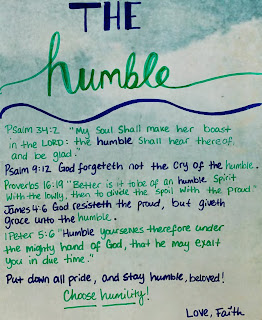 THE
humble
Psalm 34:2 "My soul shall make her boast
in the LORD: the humble shall hear thereof,
and be glad."
Psalm 9:12 God forgeteth not the cry of the humble.
Proverbs 16:19 "Better is it to be of an humble spirit
with the lowly, then to divide the spoil with the proud."
James 4:6 God resisteth the proud, but giveth
grace unto the humble.
1 Peter 5:6 "Humble yourselves therefore under
the mighty hand of God, that he may exalt
you in due time."
Put down all pride, and stay humble, beloved!
Choose humility!
Love, Faith